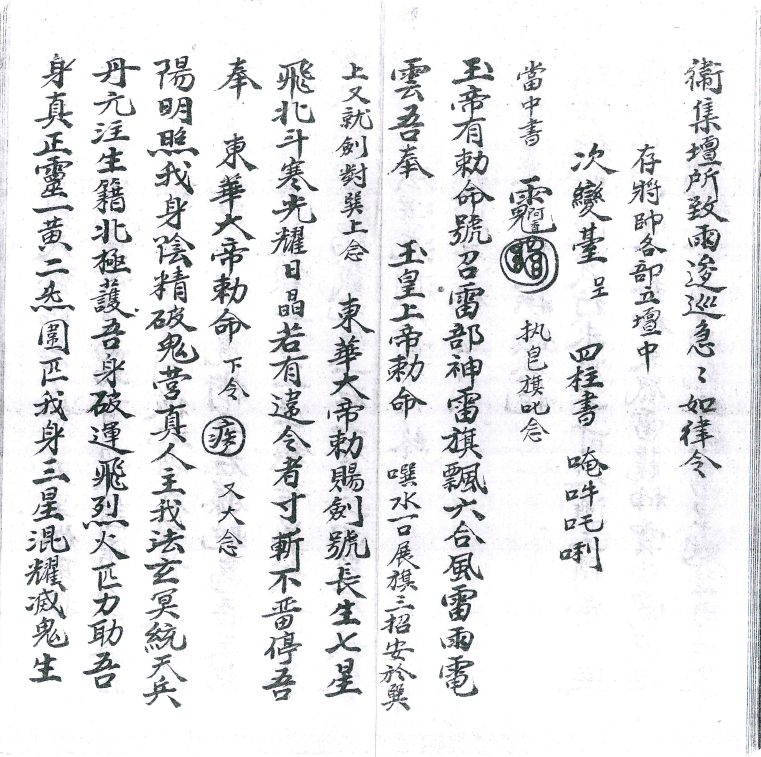 衛集壇所致雨逡巡急〻如律令
存將帥各部立壇中
次變臺呈 四柱書 唵吽吒唎
當中書 执皂旗叱念
玉帝有勅命號召雷部神雷旗飄六合風雷雨電
雲吾奉 玉皇上帝勅命 噀水一口展旗三招安於巽
上又就劍對巽上念 東華大帝勅賜劍號長生七星
飛北斗寒光耀日晶若有違令者寸斬不畱停吾
奉 東華大帝勅命 下令 又大念
陽明照我身陰精破鬼营真人主我法玄冥統天兵
丹元注生籍北極護吾身破運飛烈火匹力助吾
身真正靈一黄二炁圍匹我身三星混耀滅鬼生